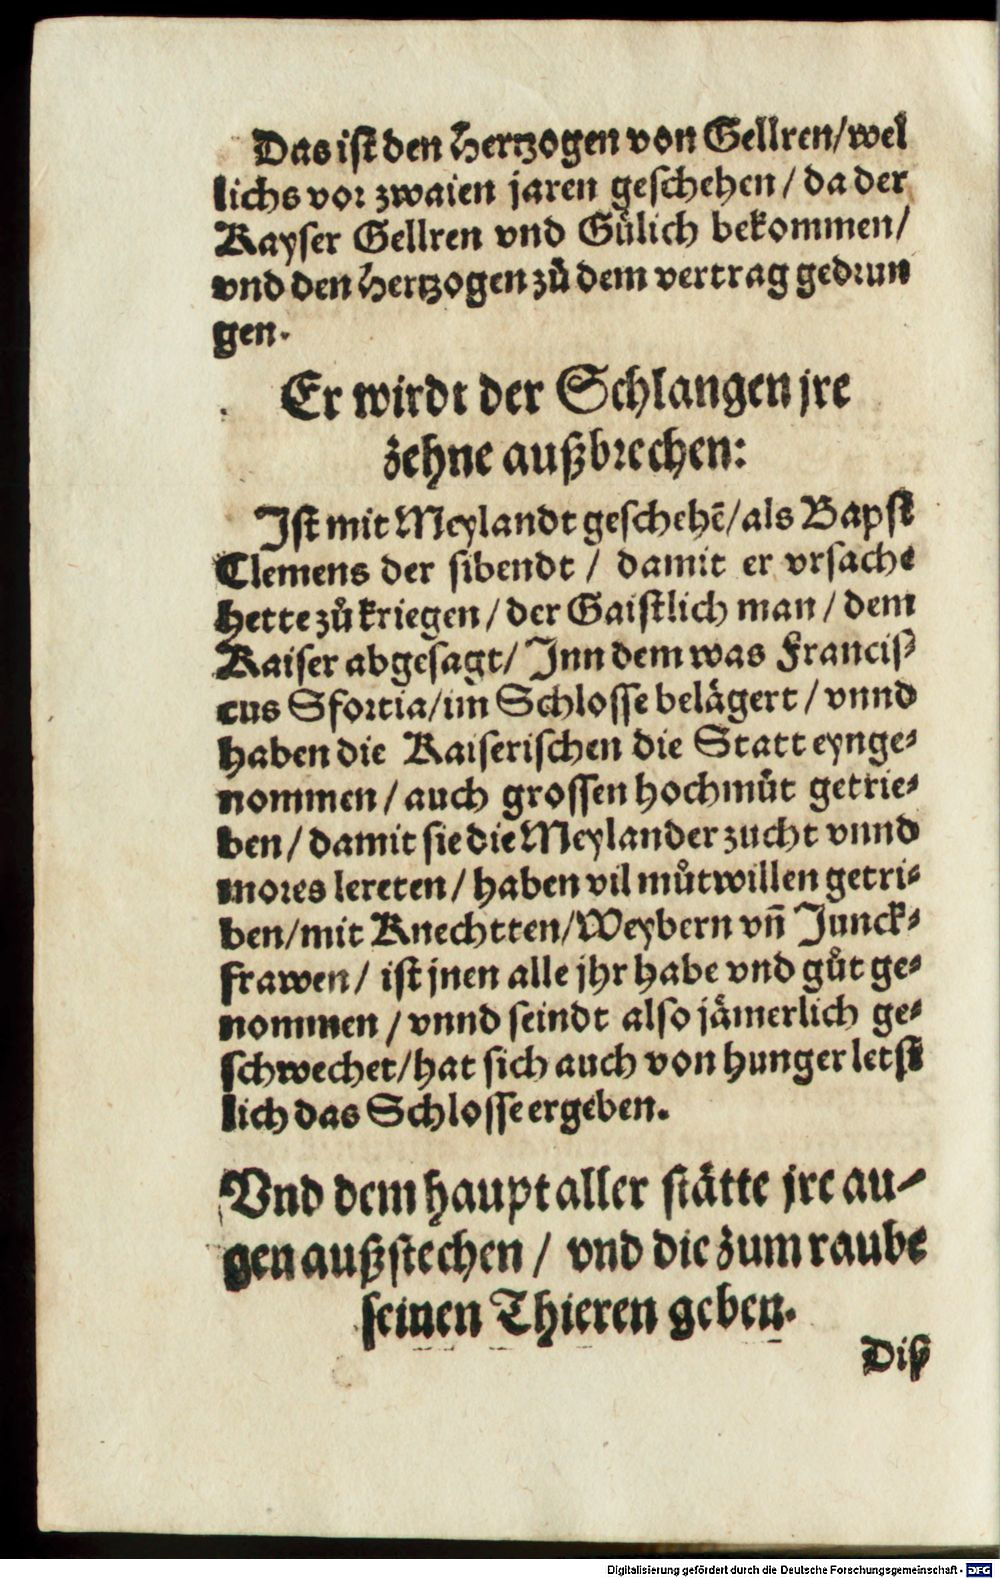 Das ist den Hertzogen von Gellren/wel
lichs vor zwaien jaren geschehen / da der
Kayser Gellren vnd Gülich bekommen/
vnd den Hertzogen zů dem vertrag gedrun
gen.
Er wirdt der Schlangen jre
zehne außbrechen:
Ist mit Meylandt geschehẽ/als Bapst
Clemens der sibendt / damit er vrsache
hette zů kriegen / der Gaistlich man / dem
Kaiser abgesagt/ Inn dem was Francis⸗
cus Sfortia/im Schlosse belägert / vnnd
haben die Kaiserischen die Statt eynge⸗
nommen / auch grossen hochmůt getrie⸗
ben / damit sie die Meylander zucht vnnd
mores lereten / haben vil můtwillen getri⸗
ben/mit Knechtten/Weybern vñ Junck⸗
frawen / ist jnen alle jhr habe vnd gůt ge⸗
nommen / vnnd seindt also jämerlich ge⸗
schwechet/hat sich auch von hunger letst
lich das Schlosse ergeben.
Vnd dem haupt aller stätte jre au⸗
gen außstechen / vnd die zum raube
seinen Thieren geben.
Diß
Digitalisierung gefördert durch die Deutsche Forschungsgemeinschaft - DFG